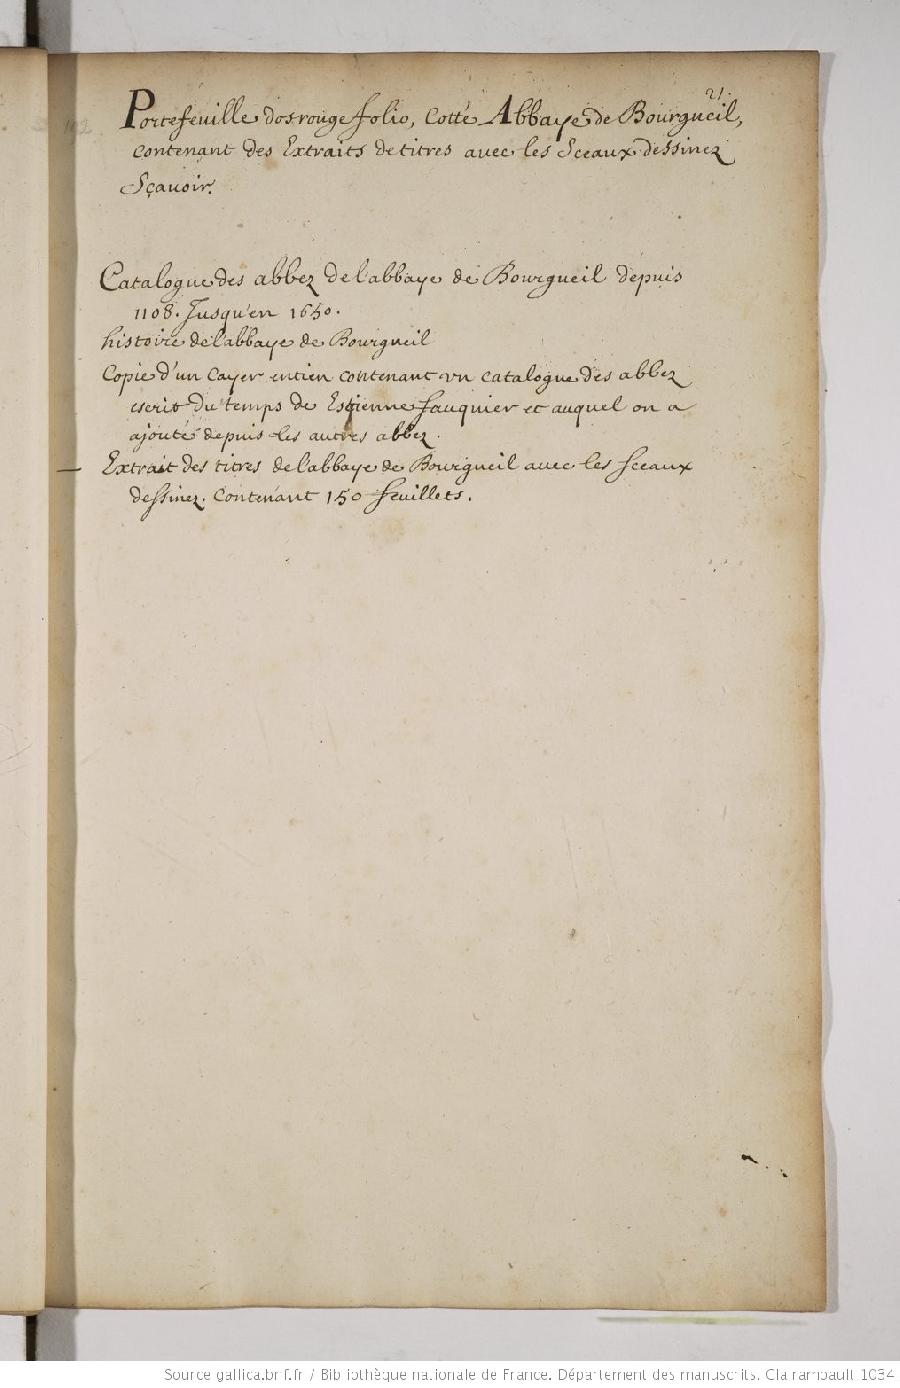 21.
Portefeuille dos rouge folio, Cotté Abbaye de Bourgueil,
contenant des Extraits de titres avec les Sceaux dessinez
Sçavoir.
Catalogue des abbez de l'abbaye de Bourgueil depuis
1108. Jusqu'en 1650.
histoire de l'abbaye de Bourgueil
Copie d'un Cayer entien contenant vn catalogue des abbez
escrit du temps de Estienne fauquier et auquel on a
ajouté depuis les autres abbez.
Extrait des titres de l'abbaye de Bourgueil avec les sceaux
dessinez. Contenant 150 feuillets.
Source gallica.bnf.fr / Bibliothèque nationale de France. Département des manuscrits. Clairambault 1034